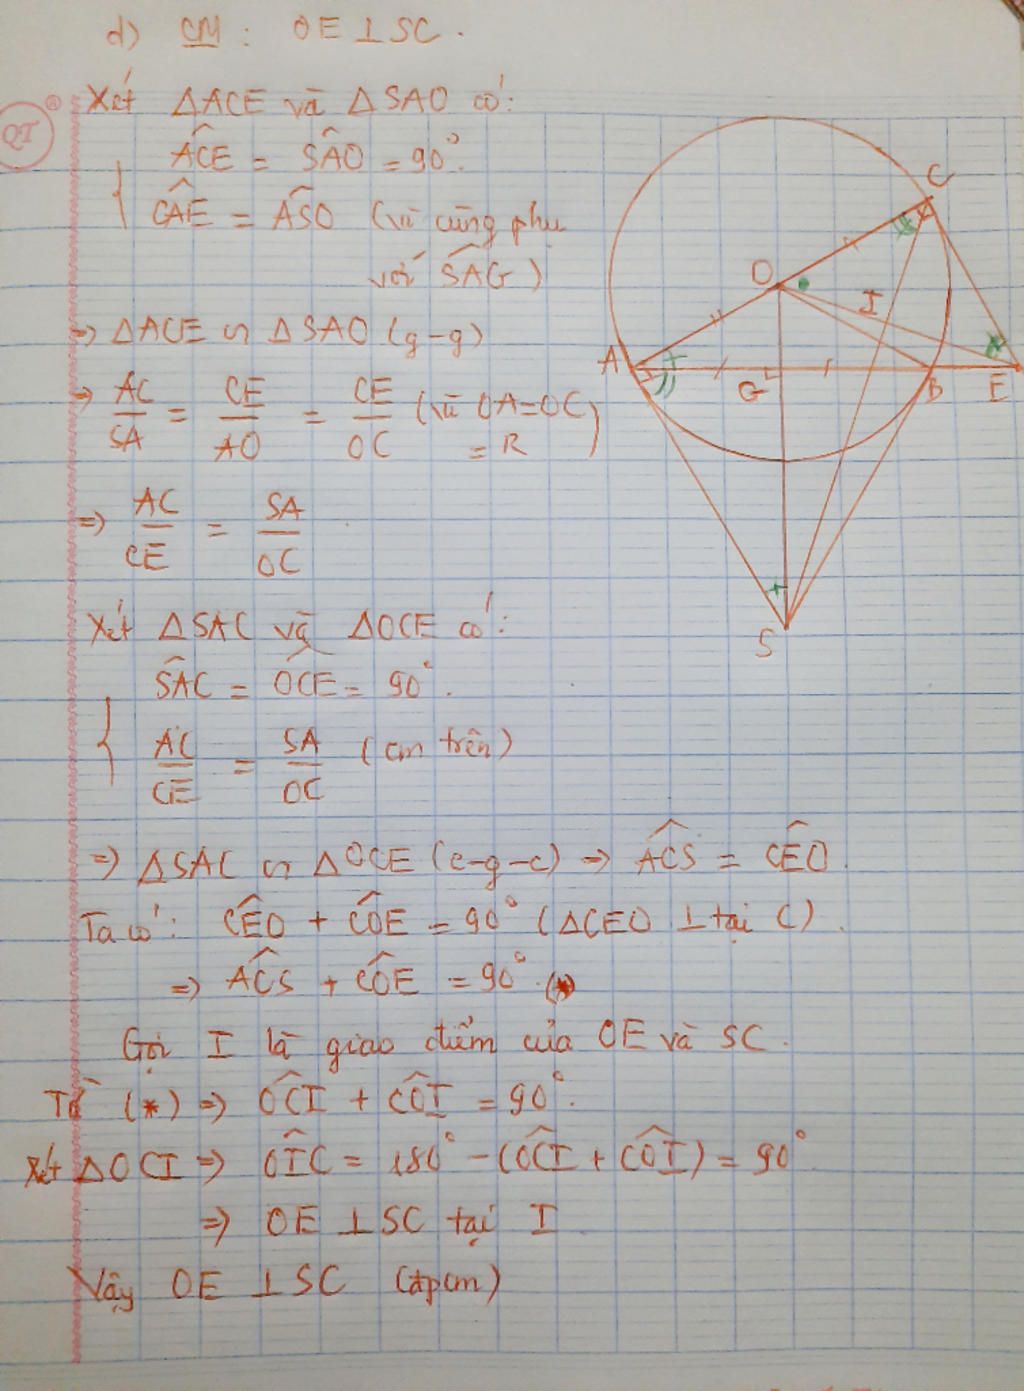 d) CM: OE ⊥ SC.
QT
Xét △ACE và △SAO có:
{ ACE^ = SAO^ = 90°.
CAE^ = ASO^ (vì cùng phụ
với SAG^)
⇒ △ACE ∽ △SAO (g-g)
⇒ AC/SA = CE/AO = CE/OC (vì OA=OC
= R)
⇒ AC/CE = SA/OC
Xét △SAC và △OCE có:
{ SAC^ = OCE^ = 90°.
AC/CE = SA/OC (cm trên)
⇒ △SAC ∽ △OCE (c-g-c) ⇒ ACS^ = CEO^.
Ta có: CEO^ + COE^ = 90° (△CEO ⊥ tại C).
⇒ ACS^ + COE^ = 90°. (*)
Gọi I là giao điểm của OE và SC.
Từ (*) ⇒ OCI^ + COI^ = 90°.
Xét △OCI ⇒ OIC^ = 180° - (OCI^ + COI^) = 90°.
⇒ OE ⊥ SC tại I
Vậy OE ⊥ SC (đpcm)
C
O
I
A
G
B
E
S